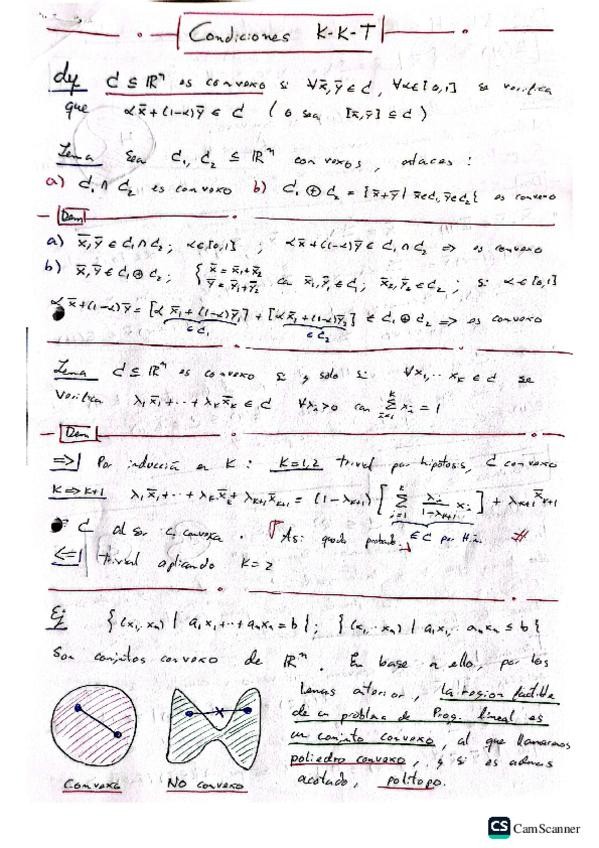 Condiciones K-K-T
df C ⊆ ℝⁿ es convexo si ∀x̄,ȳ ∈ C, ∀α∈[0,1] se verifica
que αx̄+(1-α)ȳ ∈ C (o sea [x̄,ȳ] ⊆ C)
Lema Sea C₁, C₂ ⊆ ℝⁿ convexos, entonces:
a) C₁ ∩ C₂ es convexo b) C₁ ⊕ C₂ = {x̄+ȳ | x̄∈C₁, ȳ∈C₂} es convexo
Dem
a) x̄,ȳ ∈ C₁∩C₂; α∈[0,1] ; αx̄+(1-α)ȳ ∈ C₁∩C₂ => es convexo
b) x̄,ȳ ∈ C₁⊕C₂; { x̄=x̄₁+x̄₂ ȳ=ȳ₁+ȳ₂ con x̄₁,ȳ₁∈C₁; x̄₂,ȳ₂∈C₂ ; si α∈[0,1]
αx̄+(1-α)ȳ = [αx̄₁+(1-α)ȳ₁] + [αx̄₂+(1-α)ȳ₂] ∈ C₁⊕C₂ => es convexo
∈C₁ ∈C₂
Lema C ⊆ ℝⁿ es convexo si y solo si ∀x₁,..xₖ ∈ C se
verifica λ₁x̄₁+..+λₖx̄ₖ ∈ C ∀λᵢ>0 con Σᵢ₌₁ᵏ λᵢ = 1
Dem
=>| Por inducción en K : K=1,2 trivial por hipótesis, C convexo
K=>K+1 λ₁x̄₁+..+λₖx̄ₖ+λₖ₊₁x̄ₖ₊₁ = (1-λₖ₊₁)·[Σᵢ₌₁ᵏ λᵢ/(1-λₖ₊₁) xᵢ] + λₖ₊₁x̄ₖ₊₁
∈ C al ser C convexo. Así queda probado. ∈C por H.i. #
<=| trivial aplicando K=2
Ej {(x₁..xₙ) | a₁x₁+..+aₙxₙ=b}; {(x₁..xₙ) | a₁x₁..aₙxₙ ≤ b}
Son conjuntos convexo de ℝⁿ. En base a ello, por los
lemas anterior, la region factible
de un problema de Prog. lineal es
un conjunto convexo, al que llamaremos
poliedro convexo, y si es además
acotado, politopo.
Convexo NO convexo
CS CamScanner